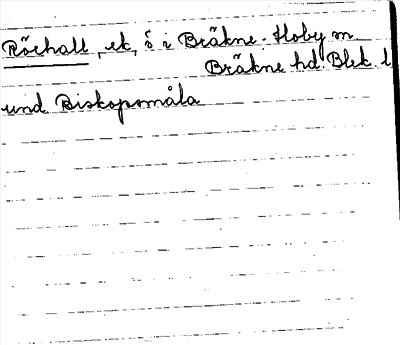 Röehall, ek, ö i Bräkne-Hoby m
Bräkne hd. Blek. l
und Biskopsmåla